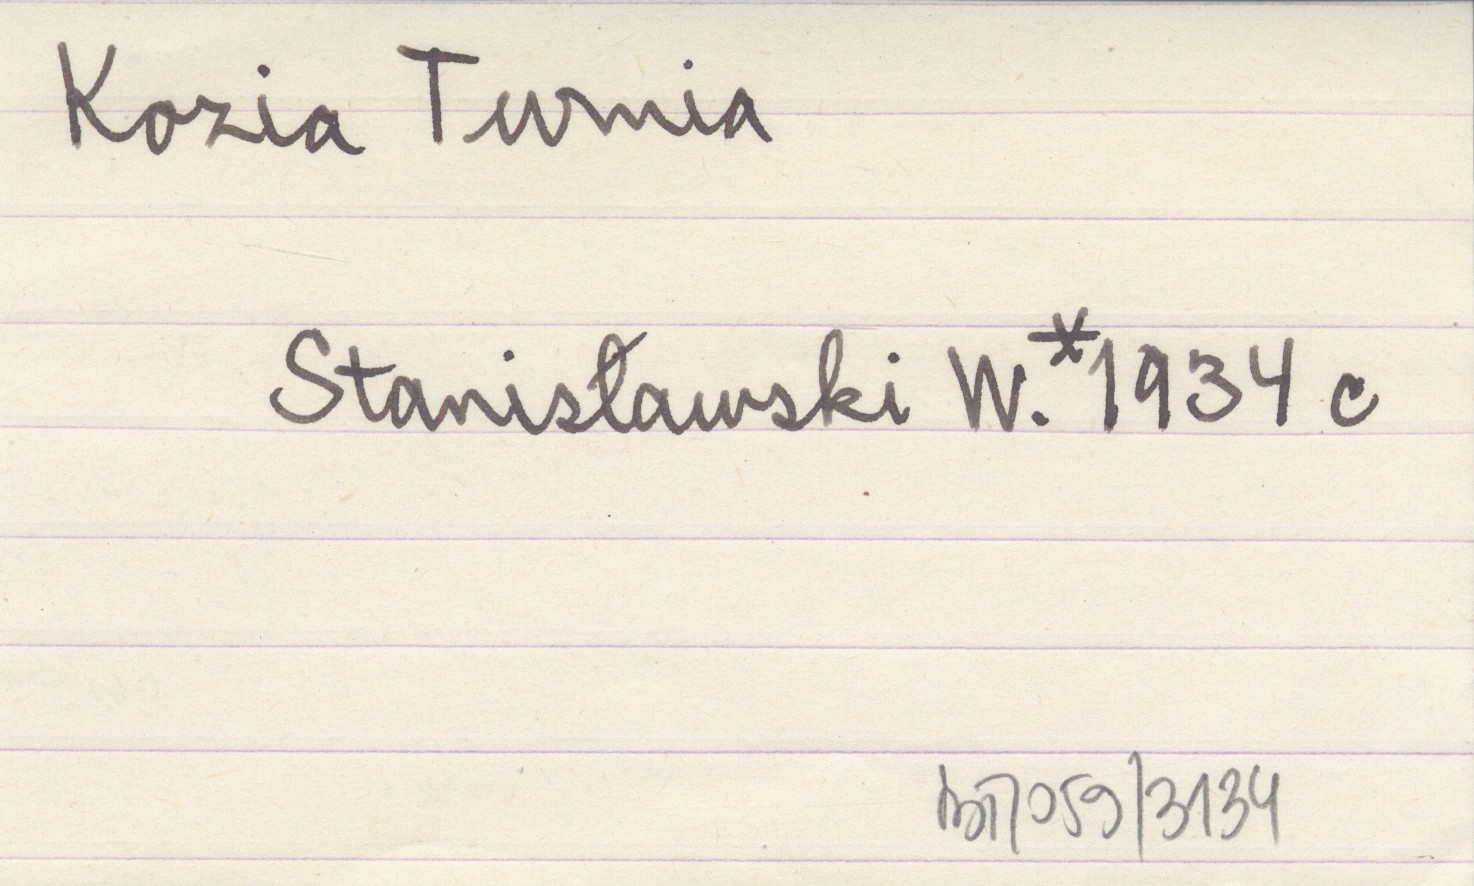 Kozia Turnia
Stanisławski W.*1934 c
059/3134